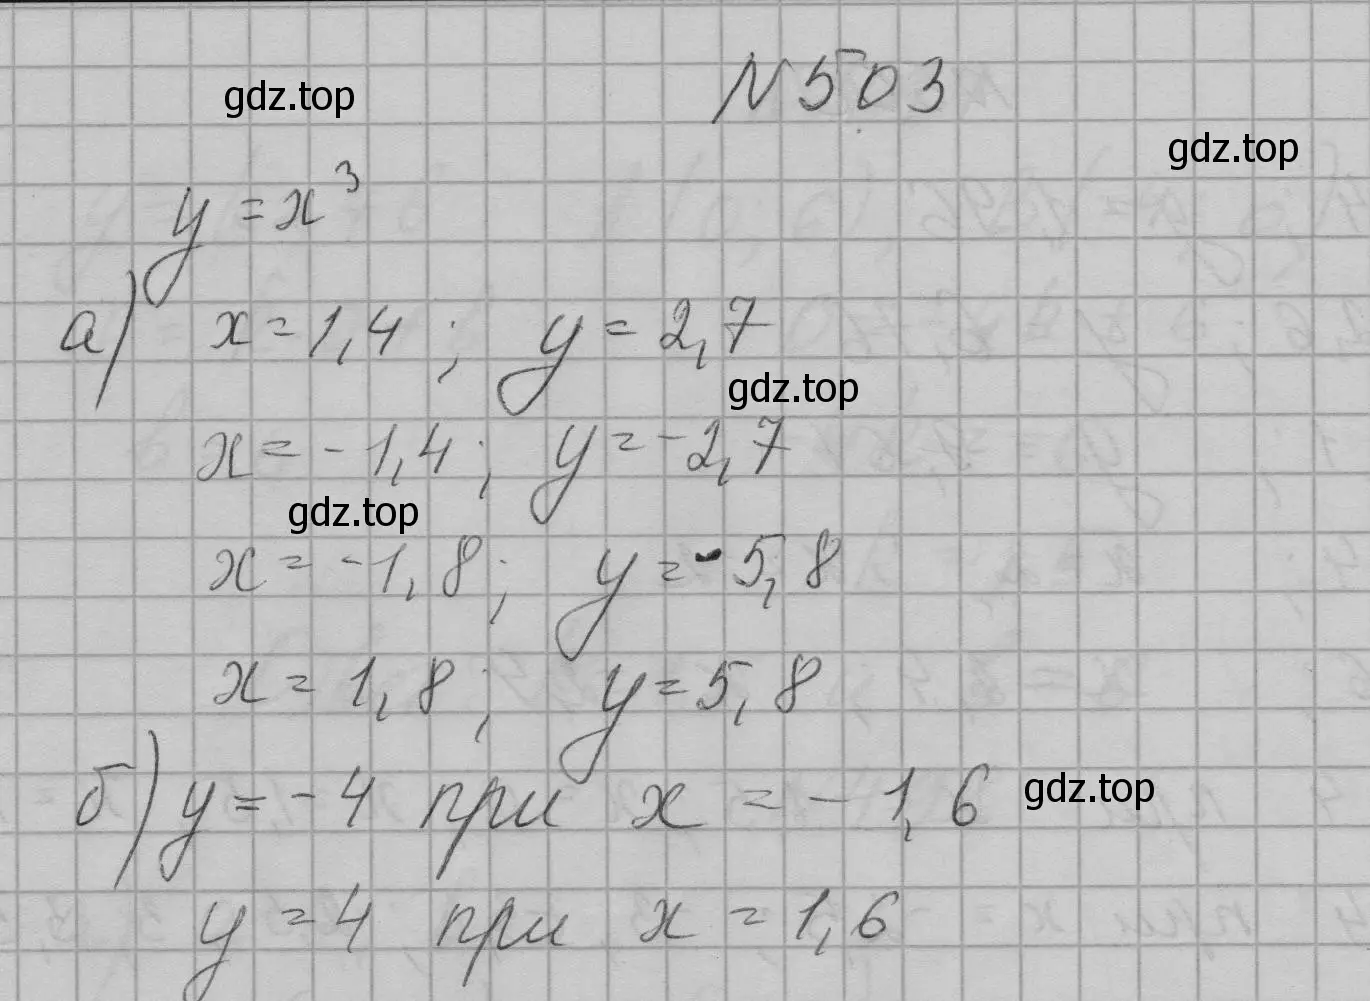 N503
gdz.top
gdz.top
y = x³
а) x = 1,4 ; y = 2,7
gdz.top
x = -1,4 ; y = -2,7
gdz.top
x = -1,8 ; y = -5,8
x = 1,8 ; y = 5,8
б) y = -4 при x = -1,6
gdz.top
y = 4 при x = 1,6